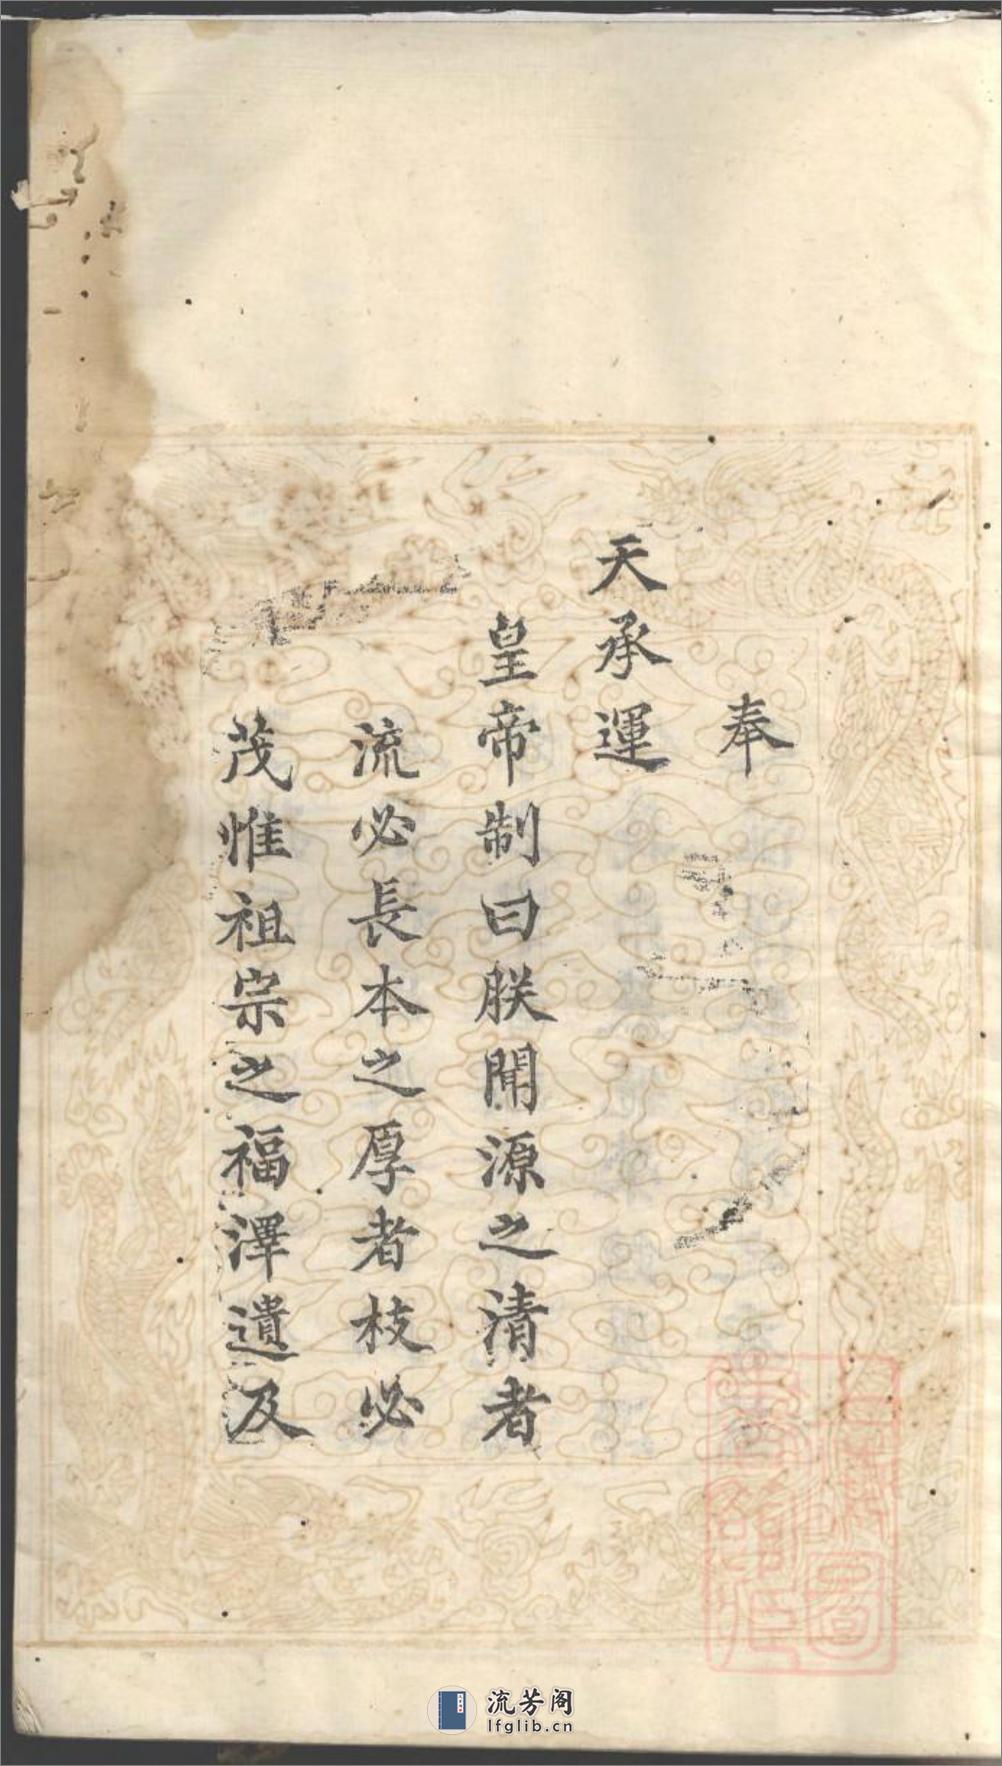 奉
天承運
皇帝制曰朕聞源之清者
流必長本之厚者枝必
茂惟祖宗之福澤遺及
流芳阁
lfglib.cn